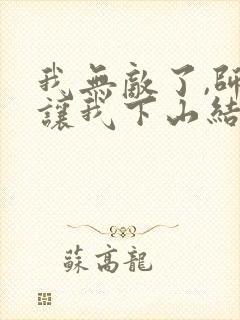 我無敵了,師
讓我下山結
蘇高龍